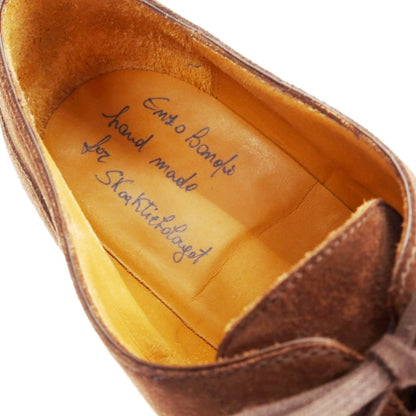 Enzo Bonafè
hand made
for
Skoaktiebolaget